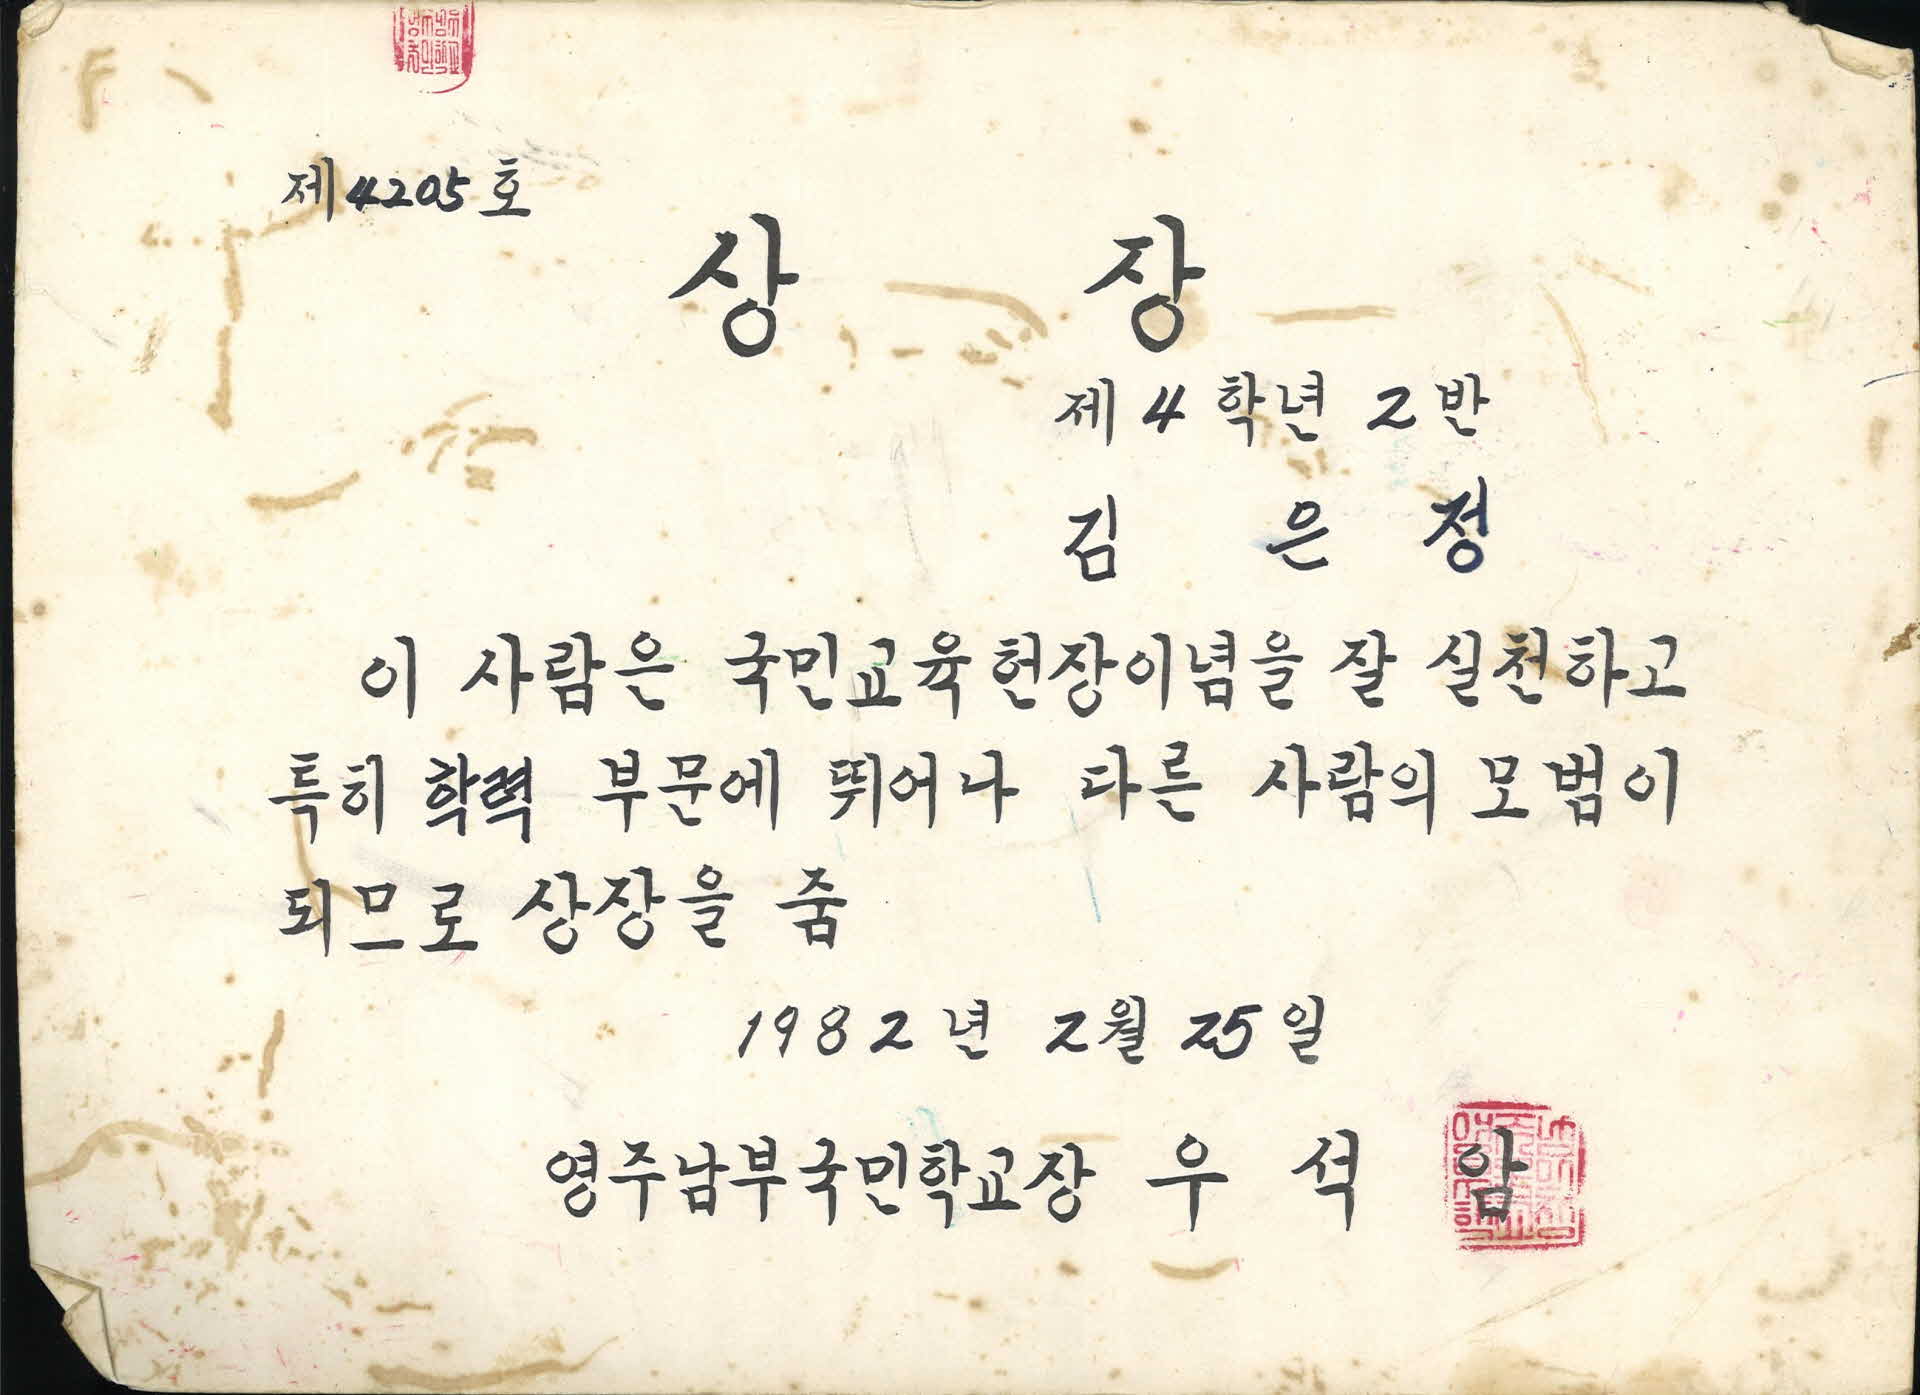 제4205호
상 장
제 4 학년 2 반
김 은 정
이 사람은 국민교육헌장이념을 잘 실천하고
특히 학력 부문에 뛰어나 다른 사람의 모범이
되므로 상장을 줌
1982년 2월 25일
영주남부국민학교장 우 석 암